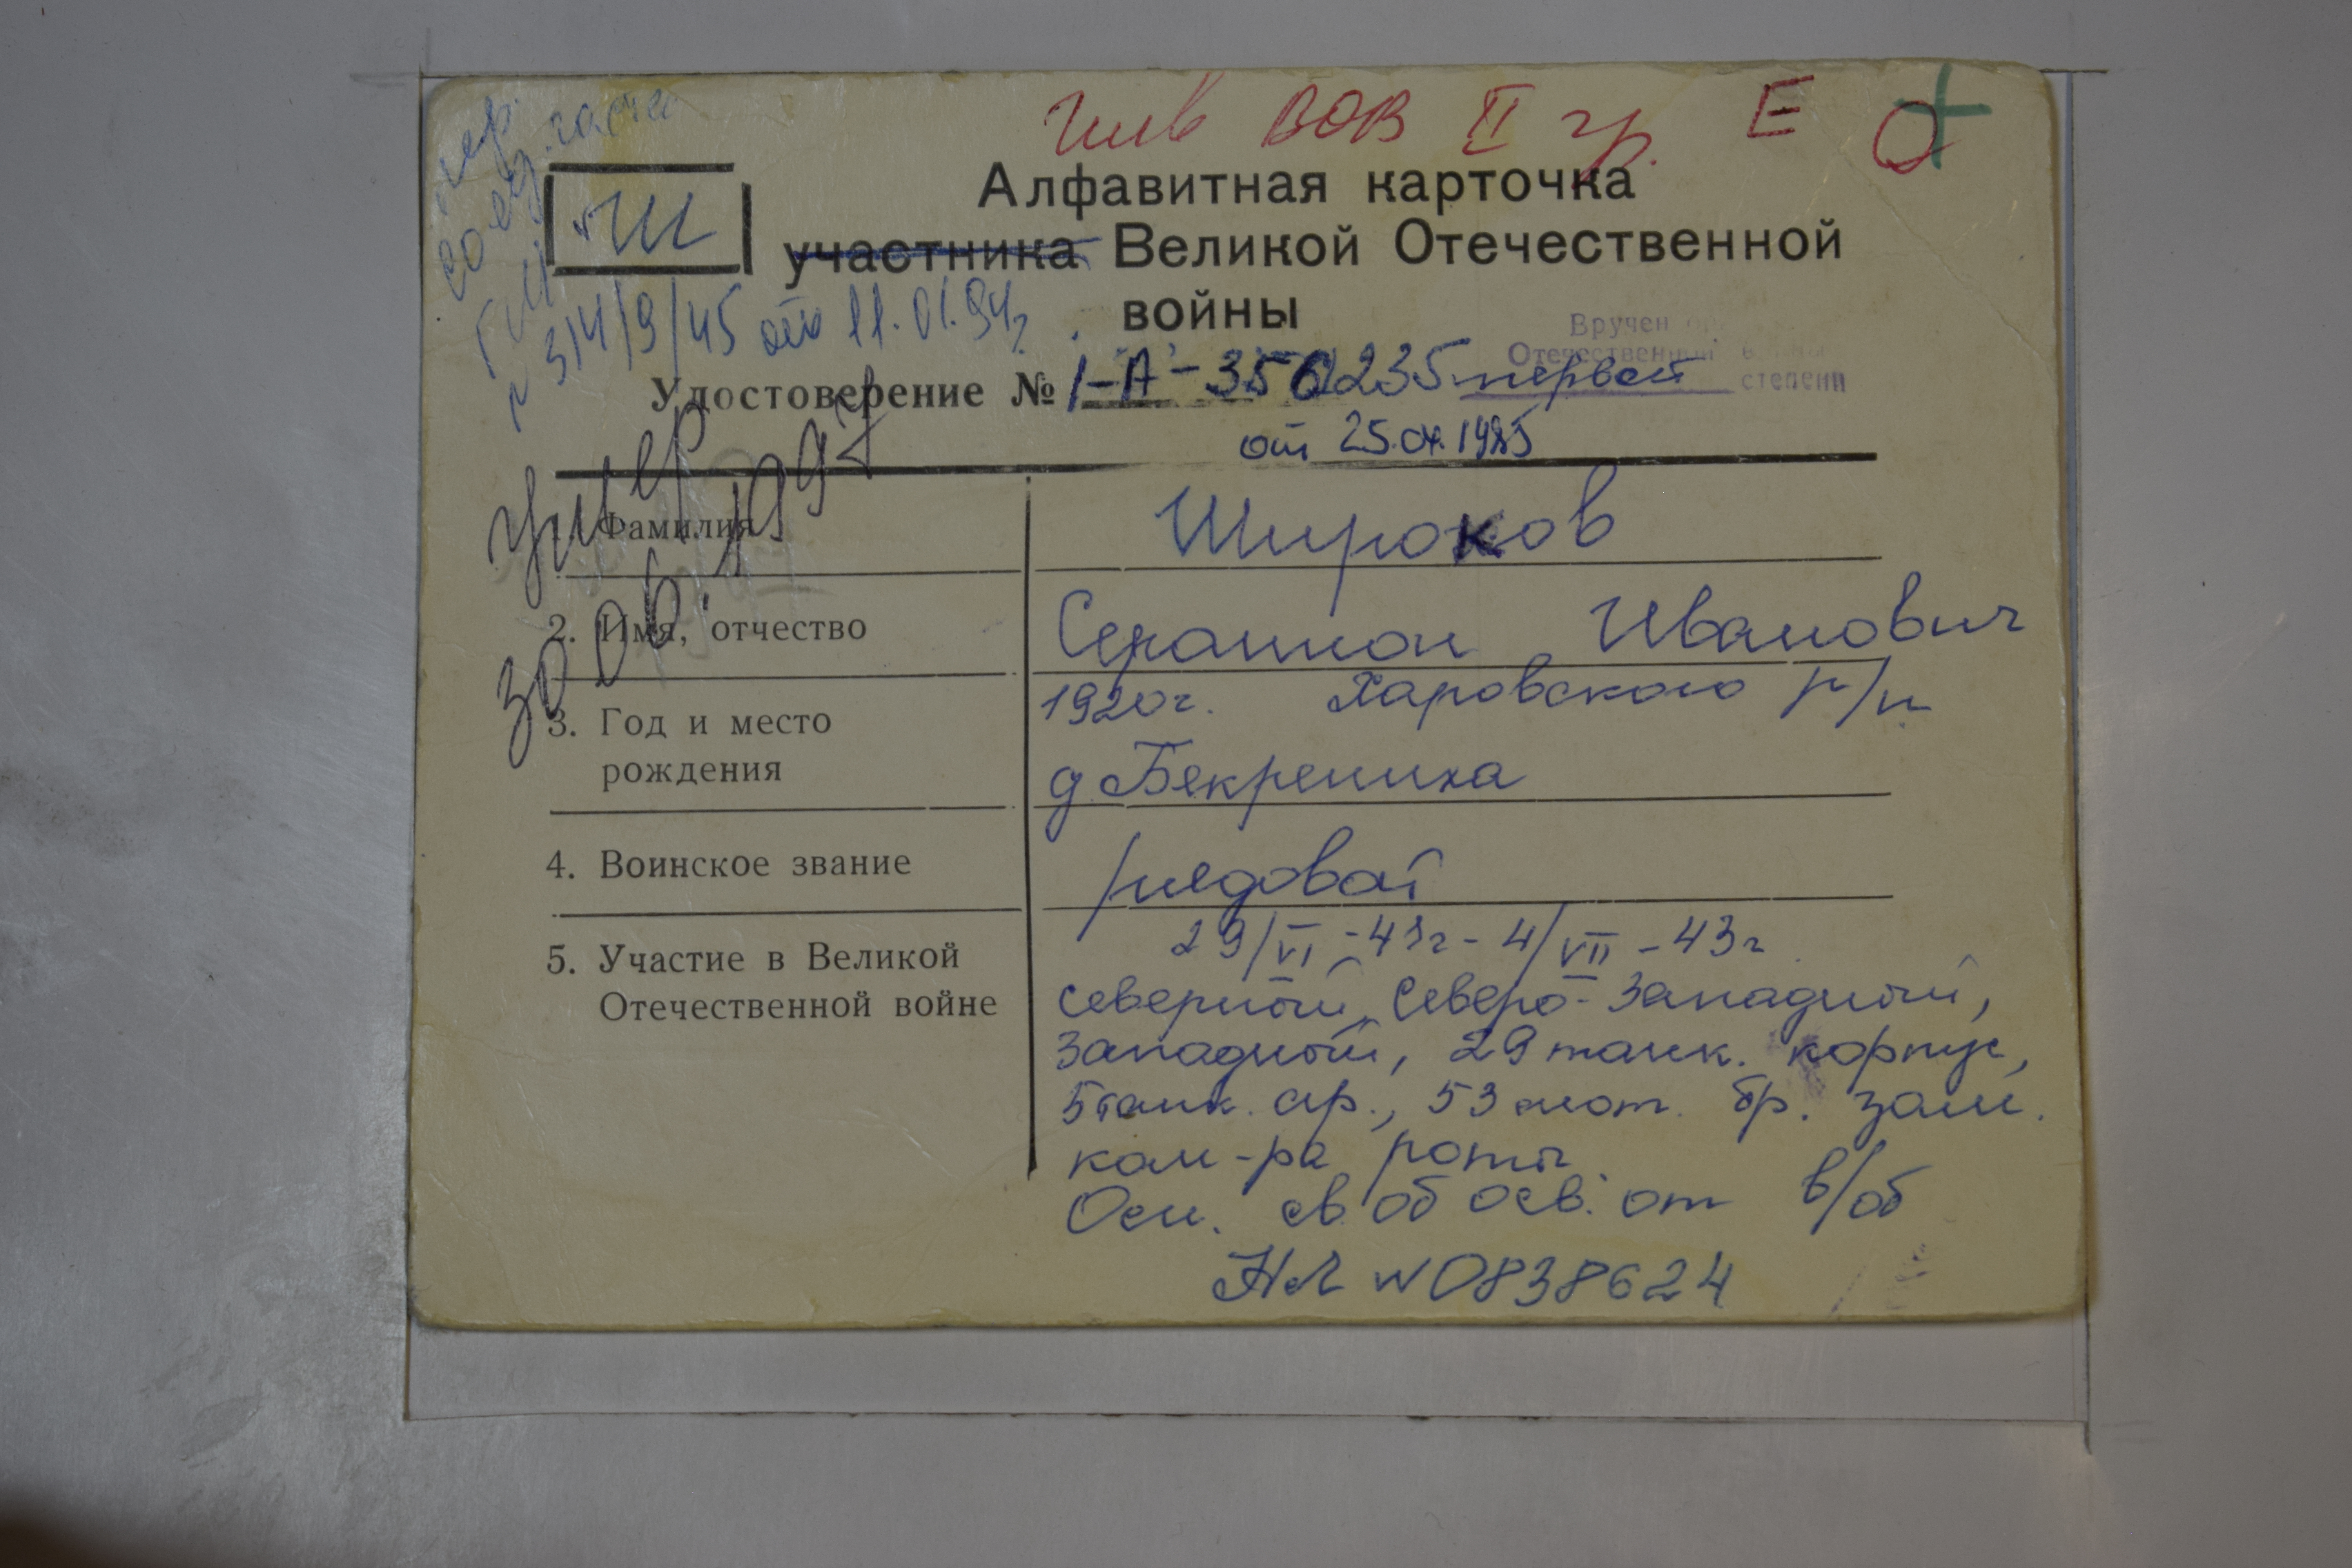 Инв ВОВ II гр. Е
Ш
Алфавитная карточка
участника Великой Отечественной
войны
№ 314/9/45 от 11.01.94г
Вручен
Отечественной войны
первой степени
Удостоверение № 1-А-350235
от 25.04.1985
умер 30.06.1994
1. Фамилия
Широков
2. Имя, отчество
Серапион Иванович
3. Год и место
рождения
1920г. Харовского р/н
д Бекрениха
4. Воинское звание
рядовой
5. Участие в Великой
Отечественной войне
29/VI-41г - 4/VII-43г
северный, Северо-Западный,
Западный, 29 танк. корпус,
5 танк. ар., 53 мот. бр. зам.
ком-ра роты
Осн. св. об осв. от в/об
НЛ №0838624